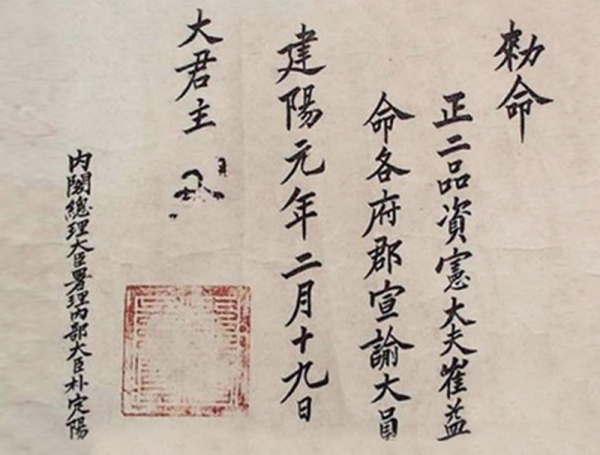 勅命
正二品資憲大夫崔益
命各府郡宣諭大員
建陽元年二月十九日
大君主
內閣總理大臣署理內部大臣朴定陽